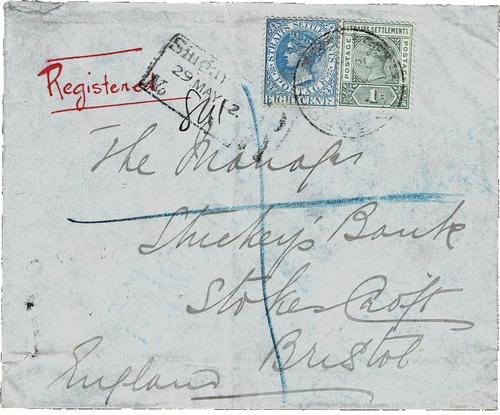 STRAITS SETTLEMENTS
POSTAGE
EIGHT CENTS
STRAITS SETTLEMENTS
POSTAGE POSTAGE
1c
29 MAY
No
Registered
The Manager
Stuckey's Bank
Stokes Croft
Bristol
England